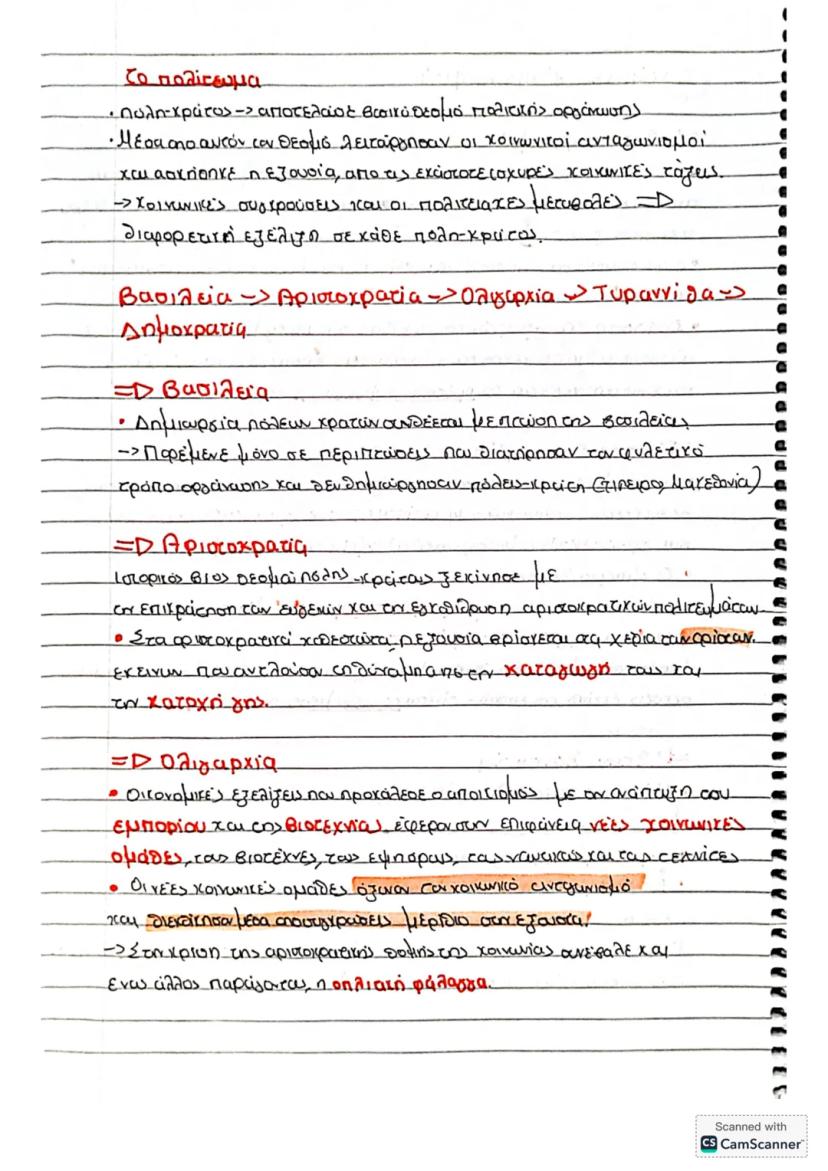 Το πολίτευμα
· Πόλη-κράτος -> αποτέλεσε βασικό θεσμό πολιτικής οργάνωσης
· Μέσα από αυτόν τον θεσμό λειτούργησαν οι κοινωνικοί ανταγωνισμοί
και ασκήθηκε η εξουσία, από τις εκάστοτε ισχυρές κοινωνικές τάξεις.
-> Κοινωνικές συγκρούσεις και οι πολιτειακές μεταβολές =>
διαφορετική εξέλιξη σε κάθε πόλη-κράτος.
Βασιλεία -> Αριστοκρατία -> Ολιγαρχία -> Τυραννίδα ->
Δημοκρατία
=> Βασιλεία
· Δημιουργία πόλεων κρατών συνδέεται με πτώση της βασιλείας
-> Παρέμενε μόνο σε περιπτώσεις που διατήρησαν τον φυλετικό
τρόπο οργάνωσης και δεν δημιούργησαν πόλεις-κράτη (Ήπειρος, Μακεδονία)
=> Αριστοκρατία
Ιστορικός βίος θεσμού πόλης-κράτους ξεκίνησε με
την επικράτηση των ευγενών και την εγκαθίδρυση αριστοκρατικών πολιτευμάτων
· Στα αριστοκρατικά καθεστώτα, η εξουσία βρίσκεται στα χέρια των αρίστων.
εκείνων που αντλούσαν τη δύναμη από την καταγωγή τους και
την κατοχή γης.
=> Ολιγαρχία
· Οικονομικές εξελίξεις που προκάλεσε ο αποικισμός με την ανάπτυξη του
εμπορίου και της βιοτεχνίας, έφεραν στην επιφάνεια νέες κοινωνικές
ομάδες, τους βιοτέχνες, τους εμπόρους, τους ναυτικούς και τους τεχνίτες
· Οι νέες κοινωνικές ομάδες όξυναν τον κοινωνικό ανταγωνισμό
και διεκδίκησαν μέσα από συγκρούσεις μερίδιο στην εξουσία!
-> Στην κρίση της αριστοκρατικής δομής της κοινωνίας συνέβαλε και
ένας άλλος παράγοντας, η οπλιτική φάλαγγα.
Scanned with
CS CamScanner